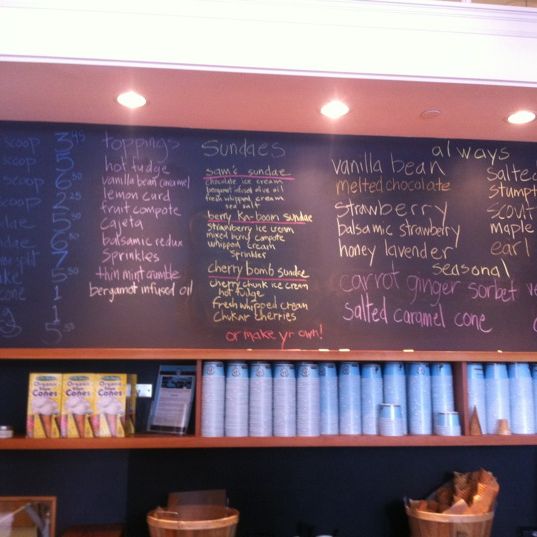 scoop 3.45
scoop 5
scoop 6
scoop 2.25
toppings
hot fudge
vanilla bean caramel
lemon curd
fruit compote
cajeta
balsamic redux
sprinkles
thin mint crumble
bergamot infused oil
Sundaes
sam's sundae
chocolate ice cream
bergamot infused olive oil
fresh whipped cream
sea salt
berry ka-boom sundae
strawberry ice cream
mixed berry compote
whipped cream
sprinkles
cherry bomb sundae
cherry chunk ice cream
hot fudge
fresh whipped cream
chukar cherries
or make yr own!
always
vanilla bean
melted chocolate
strawberry
balsamic strawberry
honey lavender
salted
stumpt
scout
maple
earl
seasonal
carrot ginger sorbet
salted caramel cone
Organic
Cones
Organic
Cones
Organic
Cones